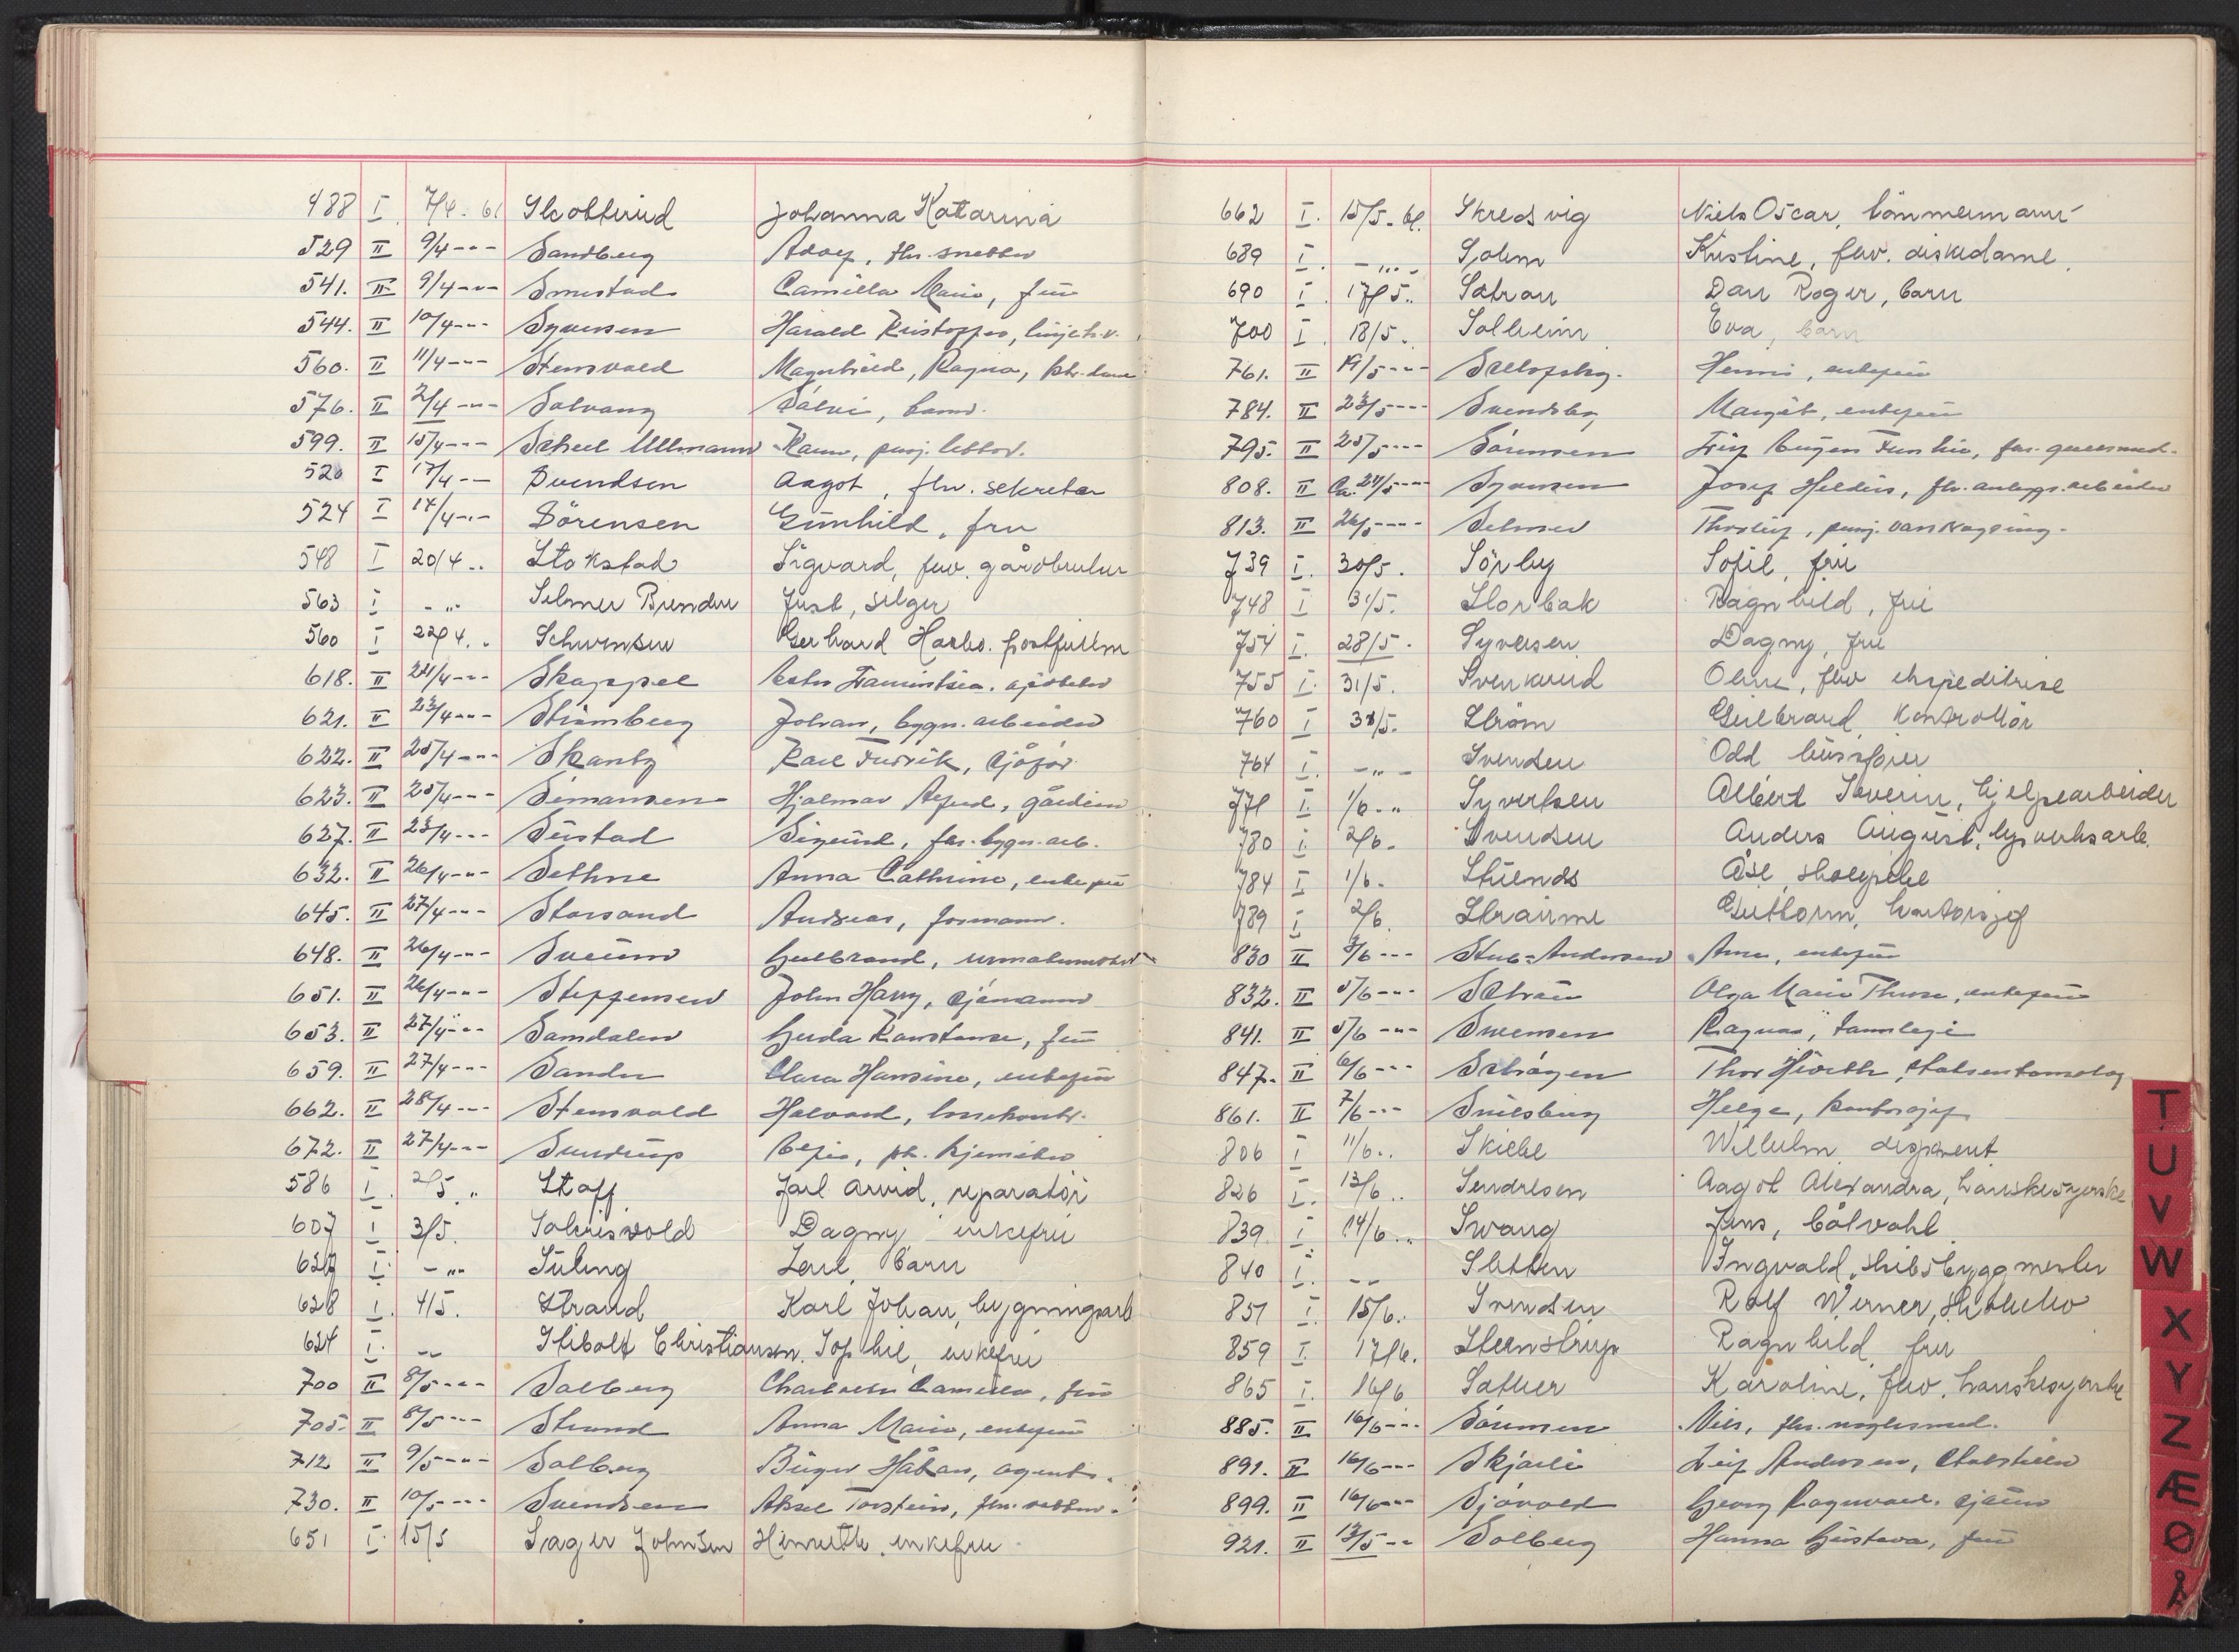 488 I. 7/4-61 Skotterud Johanna Katarina
529 II 9/4 --- Sandberg Adolf, fhv. snekker
541. II 9/4 --- Smestad Camilla Marie, frue
544. II 10/4 --- Syversen Harald Kristoffer, linjek.v.
560. II 11/4 --- Stensvold Magnhild, Ragna, ktr.dame
576. II 2/4 --- Solvang Sølvi, barn.
599. II 15/4 --- Scheel Ullmann Karen, pensj. lektor.
520 I 17/4 -- Svendsen Aagot, fhv. sekretær
524 I 17/4 --- Sörensen Gunhild, fru
548 I 20/4 .. Stokstad Sigvard, fhv. gårdbruker
563 I - " - Selmer Brender Just, selger
560 I 22/4 .. Schwensen Gerhard Harbo. postfullm
618. II 24/4 --- Skappel
621. II 23/4 --- Strömberg Johan, bygn. arbeider
622. II 25/4 --- Skanby Karl Fredrik, sjåför
623. II 25/4 --- Simansen Hjalmar Alfred, gårdeier
627. II 23/4 --- Sustad Sigurd, fhv. bygn. arb.
632. II 26/4 --- Sethne Anna Cathrine, enkefru
645. II 27/4 --- Storsand Andreas, formann.
648. II 26/4 --- Sveum Gulbrand, urmakermester
651. II 26/4 --- Steffensen John Harry, sjømann
653. II 27/4 --- Samdalen Gerda Konstanse, frue
659. II 27/4 --- Sander Clara Hansine, enkefru
662. II 28/4 --- Stensvold Halvard,
672. II 27/4 --- Sundrup
586 I. 2/5. " Staff Jarl Arvid, reparatør
607 I 3/5. Dagny enkefru
627 I - " - Süling barn
628 I. 4/5. Strand Karl Johan, bygningsarb
624 I. -- Stibolt Christiansen. Sophie, enkefru
700 II 8/5 --- Solberg Charlotte Camilla, frue
705. II 8/5 --- Strand Anna Marie, enkefru
712 II 9/5 --- Solberg Birger Håkon, agent.
730. II 10/5 --- Svendsen Aksel Torstein,
651 I. 15/5 Sager Johnsen Henriette, enkefru
662 I. 15/5-61. Skredsvig Niels Oscar, tömmermann
689 I. - " - Solem Kristine, fhv. diskedame.
690 I. 17/5.. Sætran Dan Roger, barn
700 I. 18/5. Solheim Eva, barn
761. II 19/5 --- Henni, enkefru
784. II 23/5 --- Svendsby Margit, enkefru
795. II 25/5 --- Sörensen
808. II Ca. 24/5 --- Syversen Josef
813. II 26/5 --- Selmer Thorleif, pensj.
739 I. 30/5. Sörby Sofie, fru
748 I 31/5. Storbak Ragnhild, fru
754 I. 28/5. Syversen Dagny, fru
755 I. 31/5. Svenkerud Oline, fhv ekspeditrise
760 I 31/5. Ström Gulbrand, kontrollör
764 I. - " - Svendsen Odd bussfører
771 I. 1/6.. Syvertsen Albert Severin, hjelpearbeider
780 I. 2/6. Svendsen Anders August, lysverksarb.
784 I 1/6. Åse skolepike
789 I 2/6. Straume Guthorm, kontorsjef
830 II 3/6 --- Stub-Andersen Anna, enkefru
832. II 5/6 --- Schrøn Olga Marie enkefru
841. II 5/6 --- Swensen Ragnar, tannlege
847. II 6/6 --- Schøyen Thor Hiorth, statsentomolog
861. II 7/6 --- Smilsberg Helge, kontorsjef
806 I 11/6.. Wilhelm disponent
826 I. 13/6.. Sendresen Aagot Alexandra, hanskesyerske
839. I. 14/6.. Swang Jens, båtvakt
840 I. -- Sletten Ingvald, skibsbyggmester
851 I. 15/6. Svendsen Rolf Werner,
859 I. 17/6. Steenstrup Ragnhild fru
865 I. 16/6 Sæther Karoline, fhv. hanskesyerske
885. II 16/6 --- Sörensen Nils, fhv. nøglesmed.
891. II 16/6 --- Skjørli Leif Andersen,
899. II 16/6 --- Sjåvold Georg Ragnvald.
921. II 13/5 -- Solberg Hanna Gustava, frue
T
U
V
W
X
Y
Z
Æ
Ø
Å